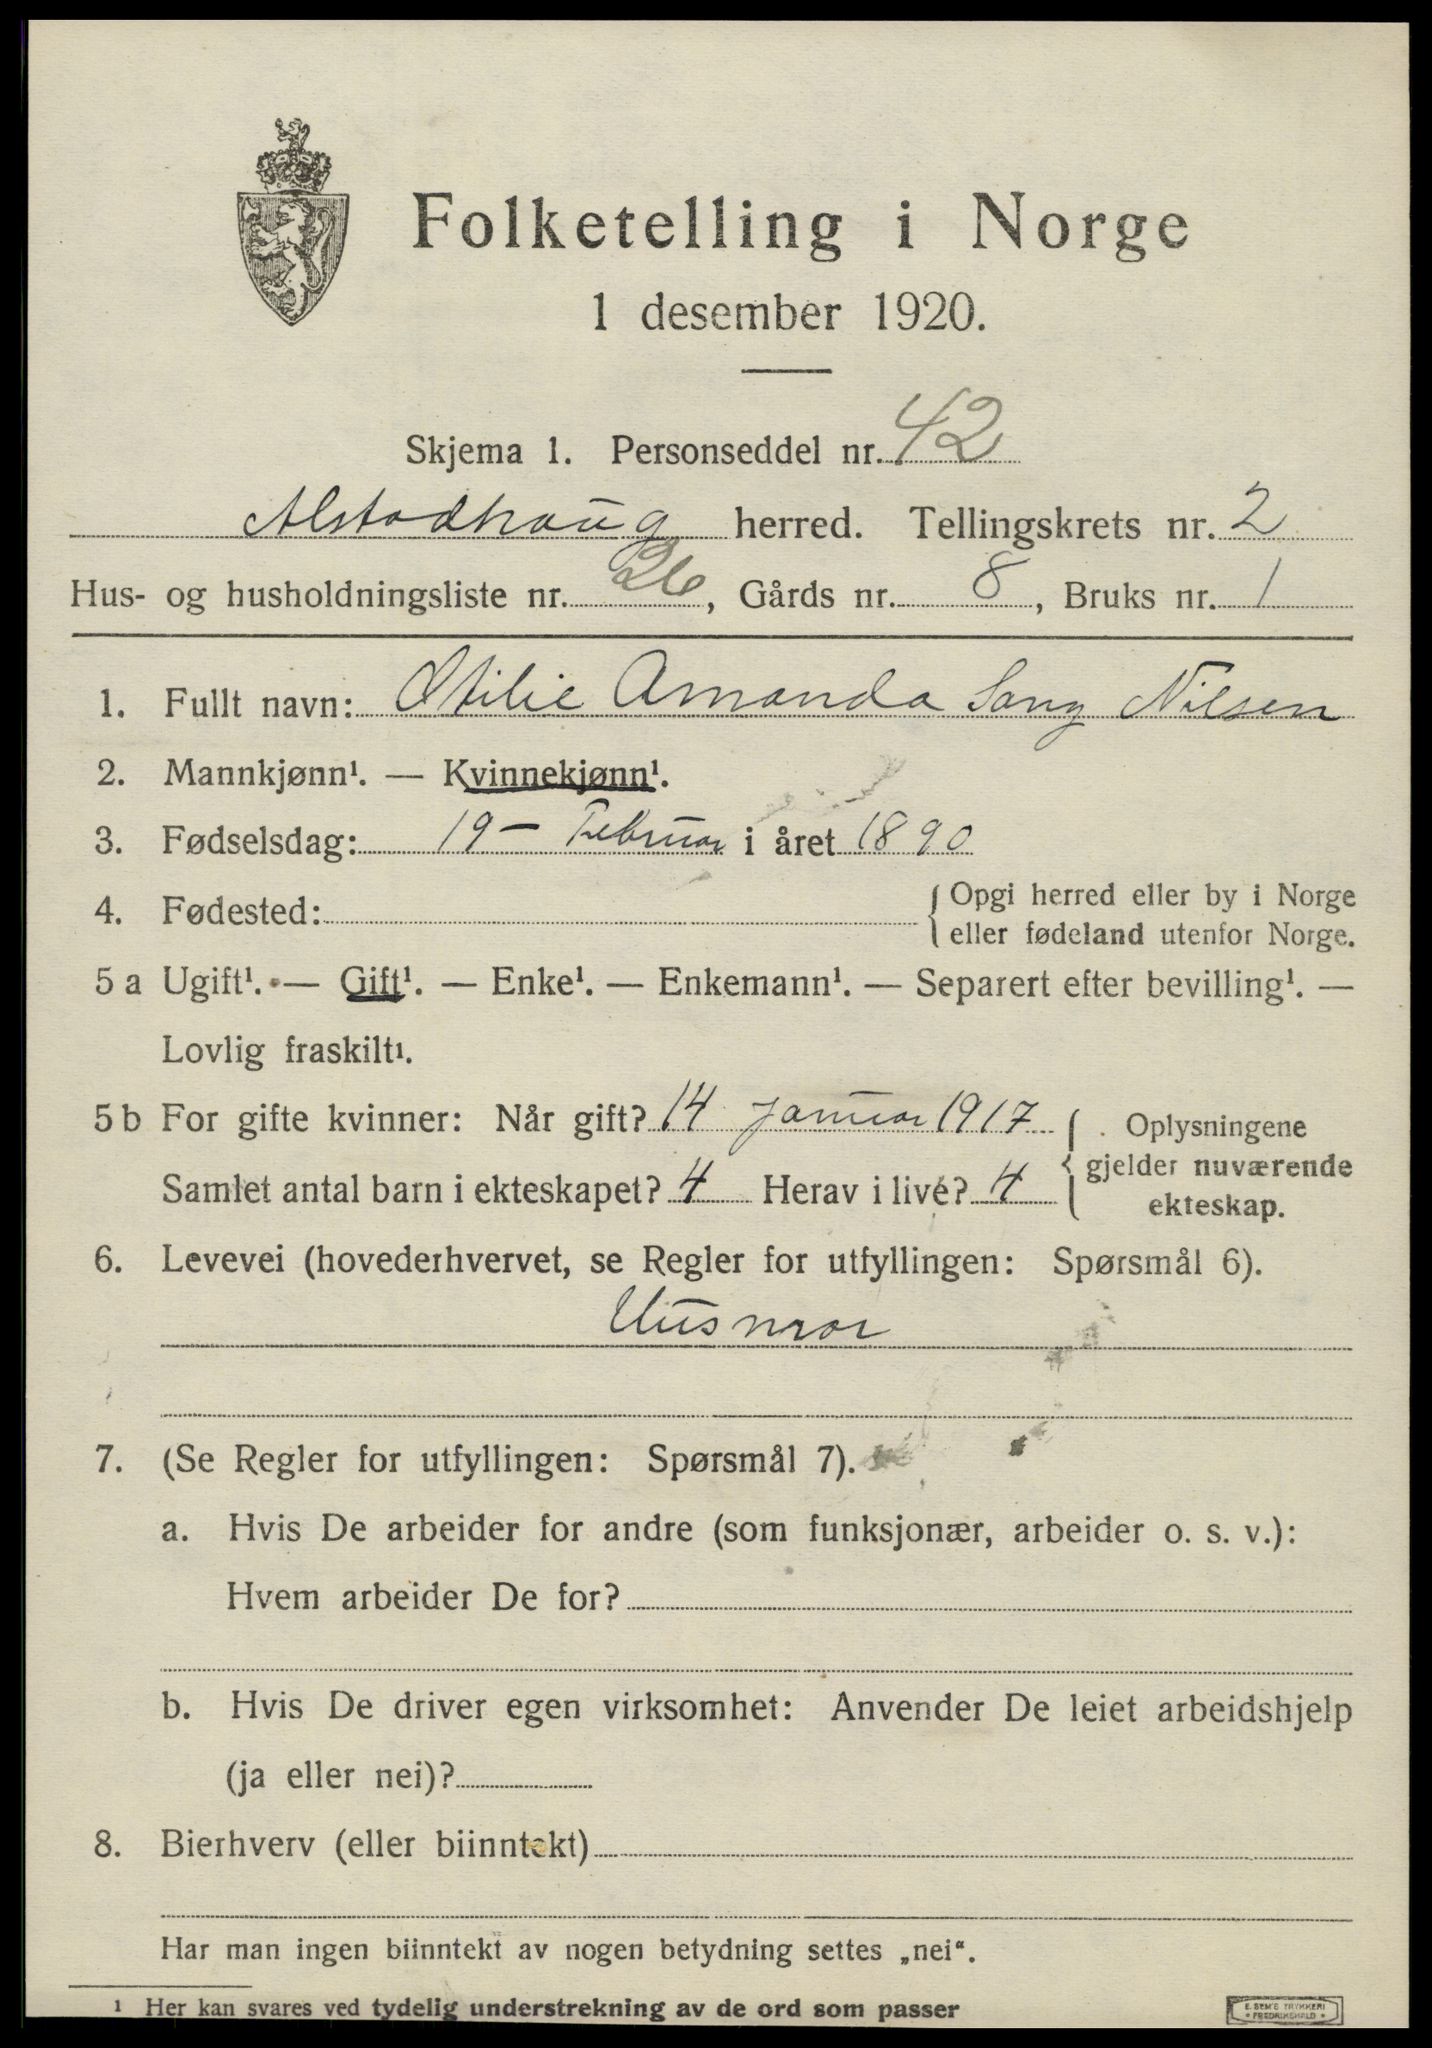 Folketelling i Norge
1 desember 1920.
Skjema 1. Personseddel nr. 42
Alstadhaug herred. Tellingskrets nr. 2
Hus- og husholdningsliste nr. 26, Gårds nr. 8, Bruks nr. 1
1. Fullt navn: Otilie Amanda Nilsen
2. Mannkjønn¹. — Kvinnekjønn¹.
3. Fødselsdag: 19 - Februar i året 1890
4. Fødested: { Opgi herred eller by i Norge
eller fødeland utenfor Norge.
5 a Ugift¹. — Gift¹. — Enke¹. — Enkemann¹. — Separert efter bevilling¹. —
Lovlig fraskilt¹.
5 b For gifte kvinner: Når gift? 14 januar 1917 { Oplysningene
gjelder nuværende
ekteskap.
Samlet antal barn i ekteskapet? 4 Herav i live? 4
6. Levevei (hovederhvervet, se Regler for utfyllingen: Spørsmål 6).
Husmor
7. (Se Regler for utfyllingen: Spørsmål 7).
a. Hvis De arbeider for andre (som funksjonær, arbeider o. s. v.):
Hvem arbeider De for?
b. Hvis De driver egen virksomhet: Anvender De leiet arbeidshjelp
(ja eller nei)?
8. Bierhverv (eller biinntekt)
Har man ingen biinntekt av nogen betydning settes „nei“.
¹ Her kan svares ved tydelig understrekning av de ord som passer
E. SEM'S TRYKKERI
FREDRIKSHALD